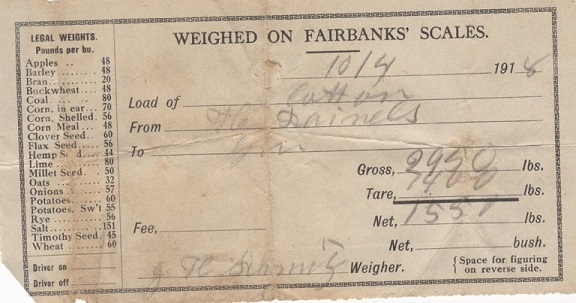 LEGAL WEIGHTS.
Pounds per bu.
Apples .. 48
Barley ...... 48
Bran........... 20
Buckwheat .... 48
Coal ... .. 80
Corn, in ear... 70
Corn, Shelled. 56
Corn Meal ... 48
Clover Seed.. 60
Flax Seed .... 56
Hemp Seed .. 44
Lime ......... 80
Millet Seed . 50
Oats ........ 32
Onions ...... 57
Potatoes..... 60
Potatoes. Sw't 55
Rye ......... 56
Salt ........151
Timothy Seed. 45
Wheat ...... 60
Driver on
Driver off
WEIGHED ON FAIRBANKS' SCALES.
10/4 1918
Load of Cotton
From Daniels
To Gin
Gross, lbs.
Tare, lbs.
Net, lbs.
Fee,
Net, bush.
Weigher.
{ Space for figuring
on reverse side. }